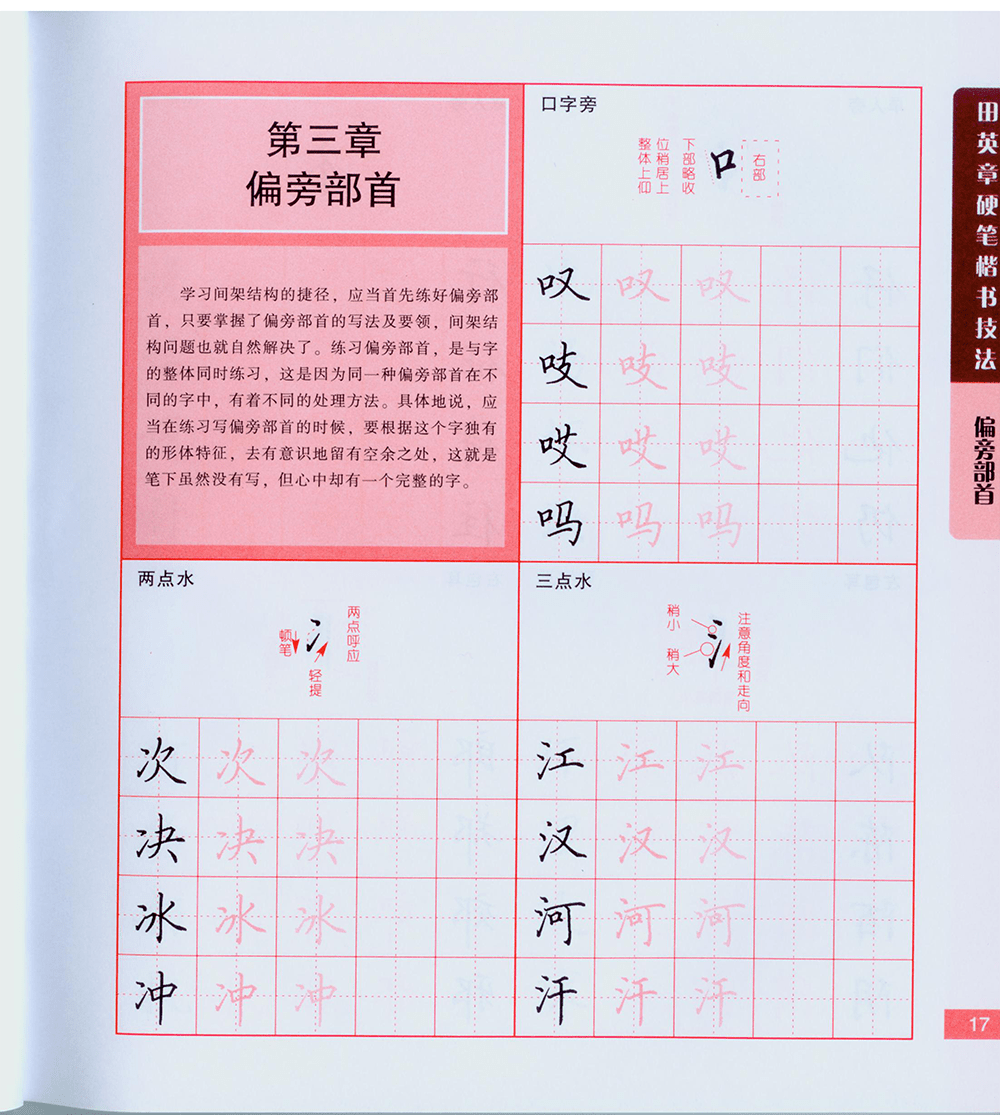 第三章
偏旁部首
学习间架结构的捷径，应当首先练好偏旁部
首，只要掌握了偏旁部首的写法及要领，间架结
构问题也就自然解决了。练习偏旁部首，是与字
的整体同时练习，这是因为同一种偏旁部首在不
同的字中，有着不同的处理方法。具体地说，应
当在练习写偏旁部首的时候，要根据这个字独有
的形体特征，去有意识地留有空余之处，这就是
笔下虽然没有写，但心中却有一个完整的字。
口字旁
整体上仰
位稍居上
下部略收
口
右部
叹叹叹
吱吱吱
哎哎哎
吗吗吗
两点水
顿笔
冫
轻提
两点呼应
次次次
决决决
冰冰冰
冲冲冲
三点水
稍小
稍大
氵
注意角度和走向
江江江
汉汉汉
河河河
汗汗汗
田英章硬笔楷书技法
偏旁部首
17